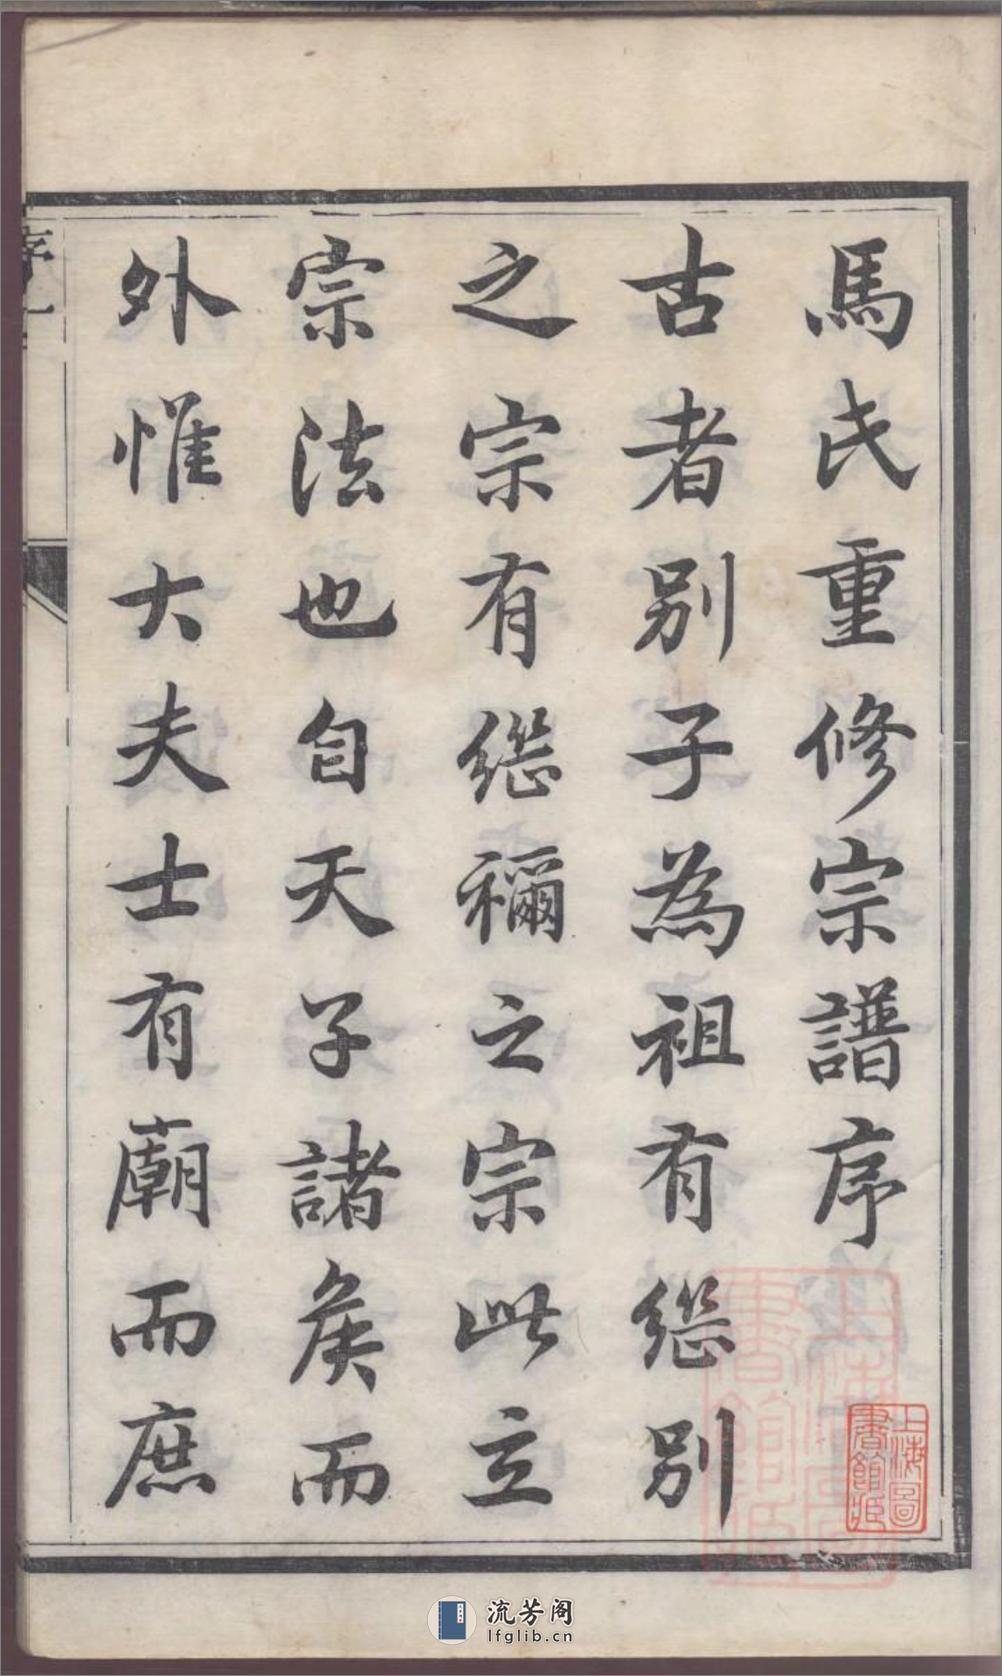 馬氏重修宗譜序
古者別子為祖有継別
之宗有継禰之宗此立
宗法也自天子諸矦而
外惟大夫士有廟而庶
序一
上海圖
書館藏
流芳阁
lfglib.cn